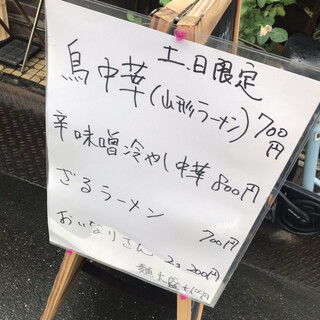 土、日限定
鳥中華(山形ラーメン) 700円
辛味噌冷やし中華 800円
ざるラーメン 700円
おいなりさん 2コ 200円
麺大盛 +100円